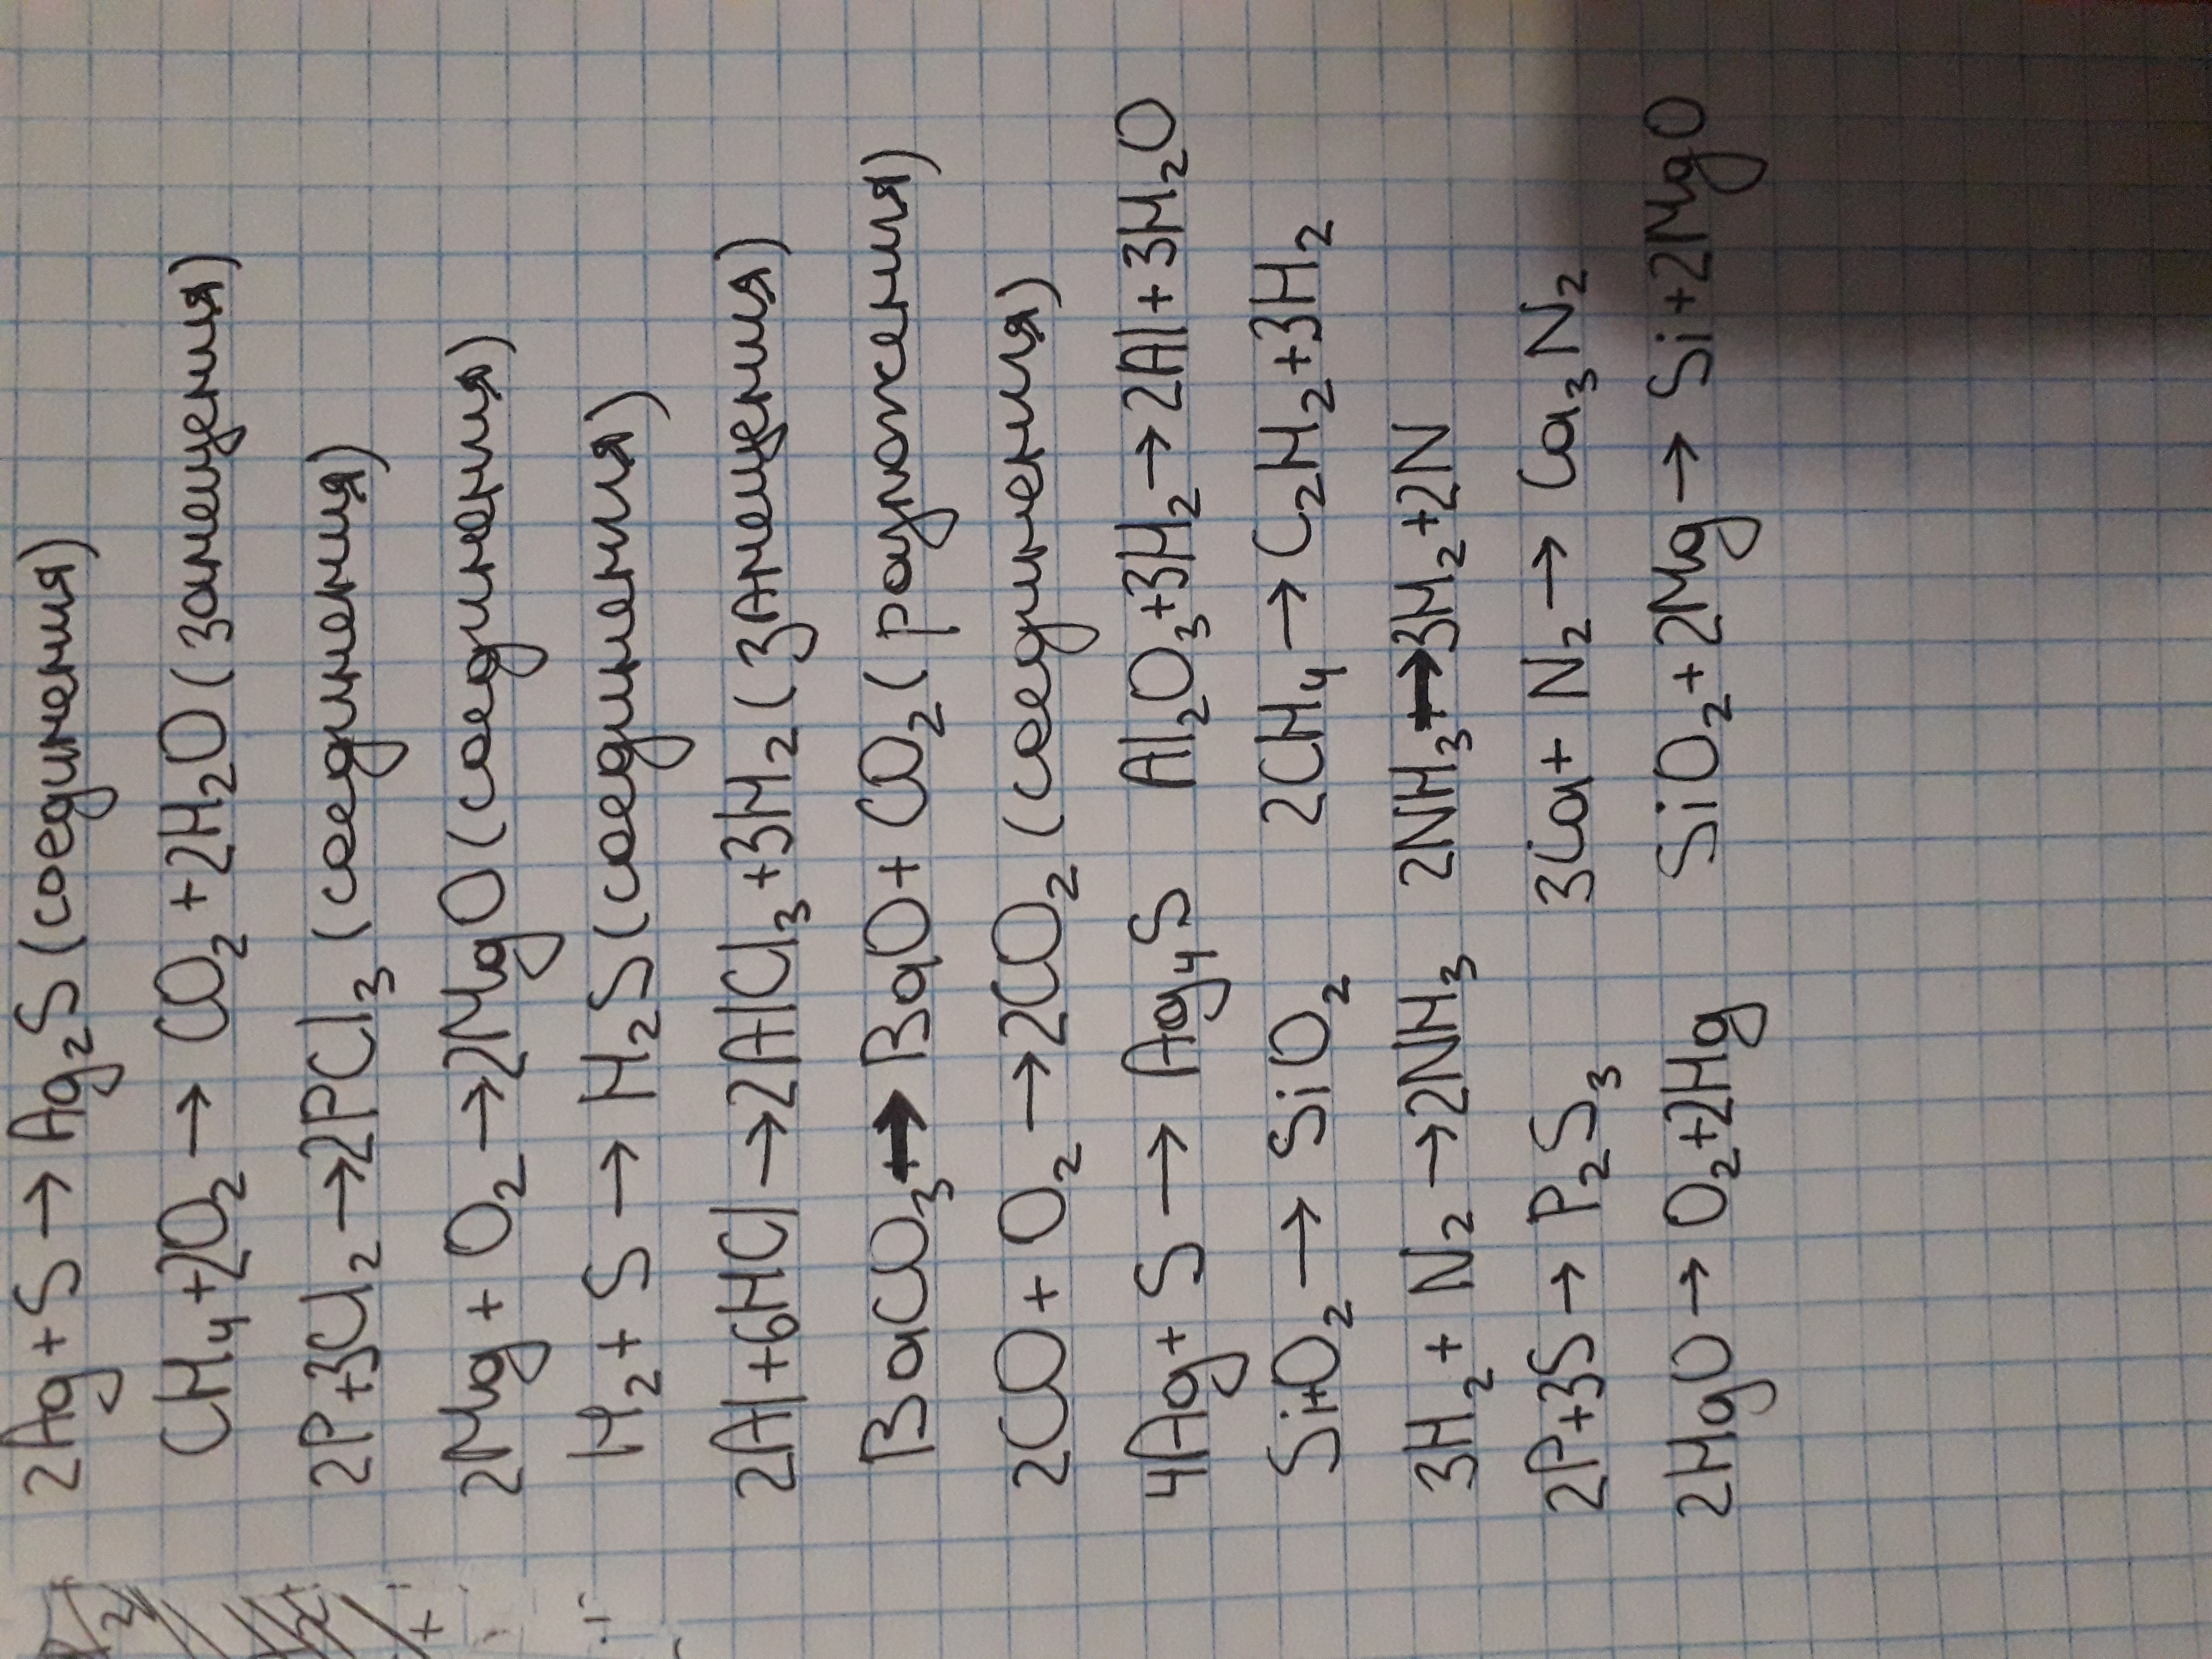 2Ag+S→Ag₂S(соединения)
CH₄+2O₂→CO₂+2H₂O(замещения)
2P+3Cl₂→2PCl₃(соединения)
2Mg+O₂→2MgO(соединения)
H₂+S→H₂S(соединения)
2Al+6HCl→2AlCl₃+3H₂(замещения)
BaCO₃→BaO+CO₂(разложения)
2CO+O₂→2CO₂(соединения)
4Ag+S→Ag₄S Al₂O₃+3H₂→2Al+3H₂O
Si+O₂→SiO₂ 2CH₄→C₂H₂+3H₂
3H₂+N₂→2NH₃ 2NH₃→3H₂+2N
2P+3S→P₂S₃ 3Ca+N₂→Ca₃N₂
2HgO→O₂+2Hg SiO₂+2Mg→Si+2MgO